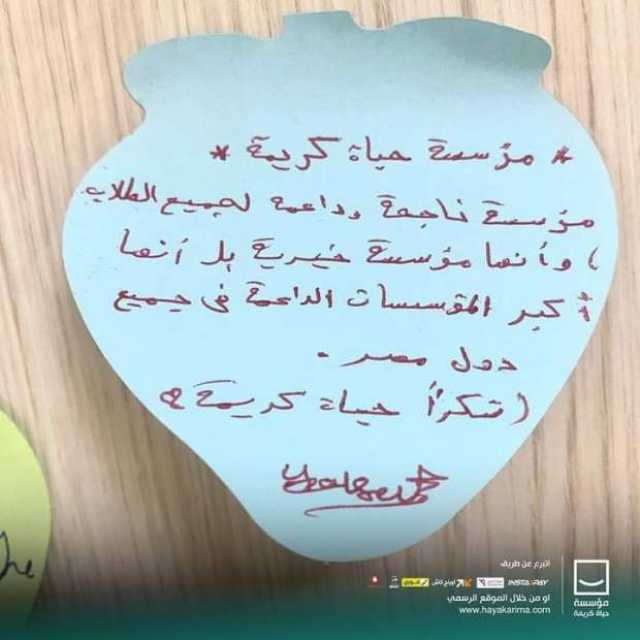 * مؤسسة حياة كريمة *
مؤسسة ناجحة وداعمة لجميع الطلاب
) وأنها مؤسسة خيرية بل أنها
أكبر المؤسسات الداعمة في جميع
دول مصر .
( شكراً حياة كريمة
اتبرع عن طريق
INSTAPAY
او من خلال الموقع الرسمي
www.hayakarima.com
مؤسسة
حياة كريمة